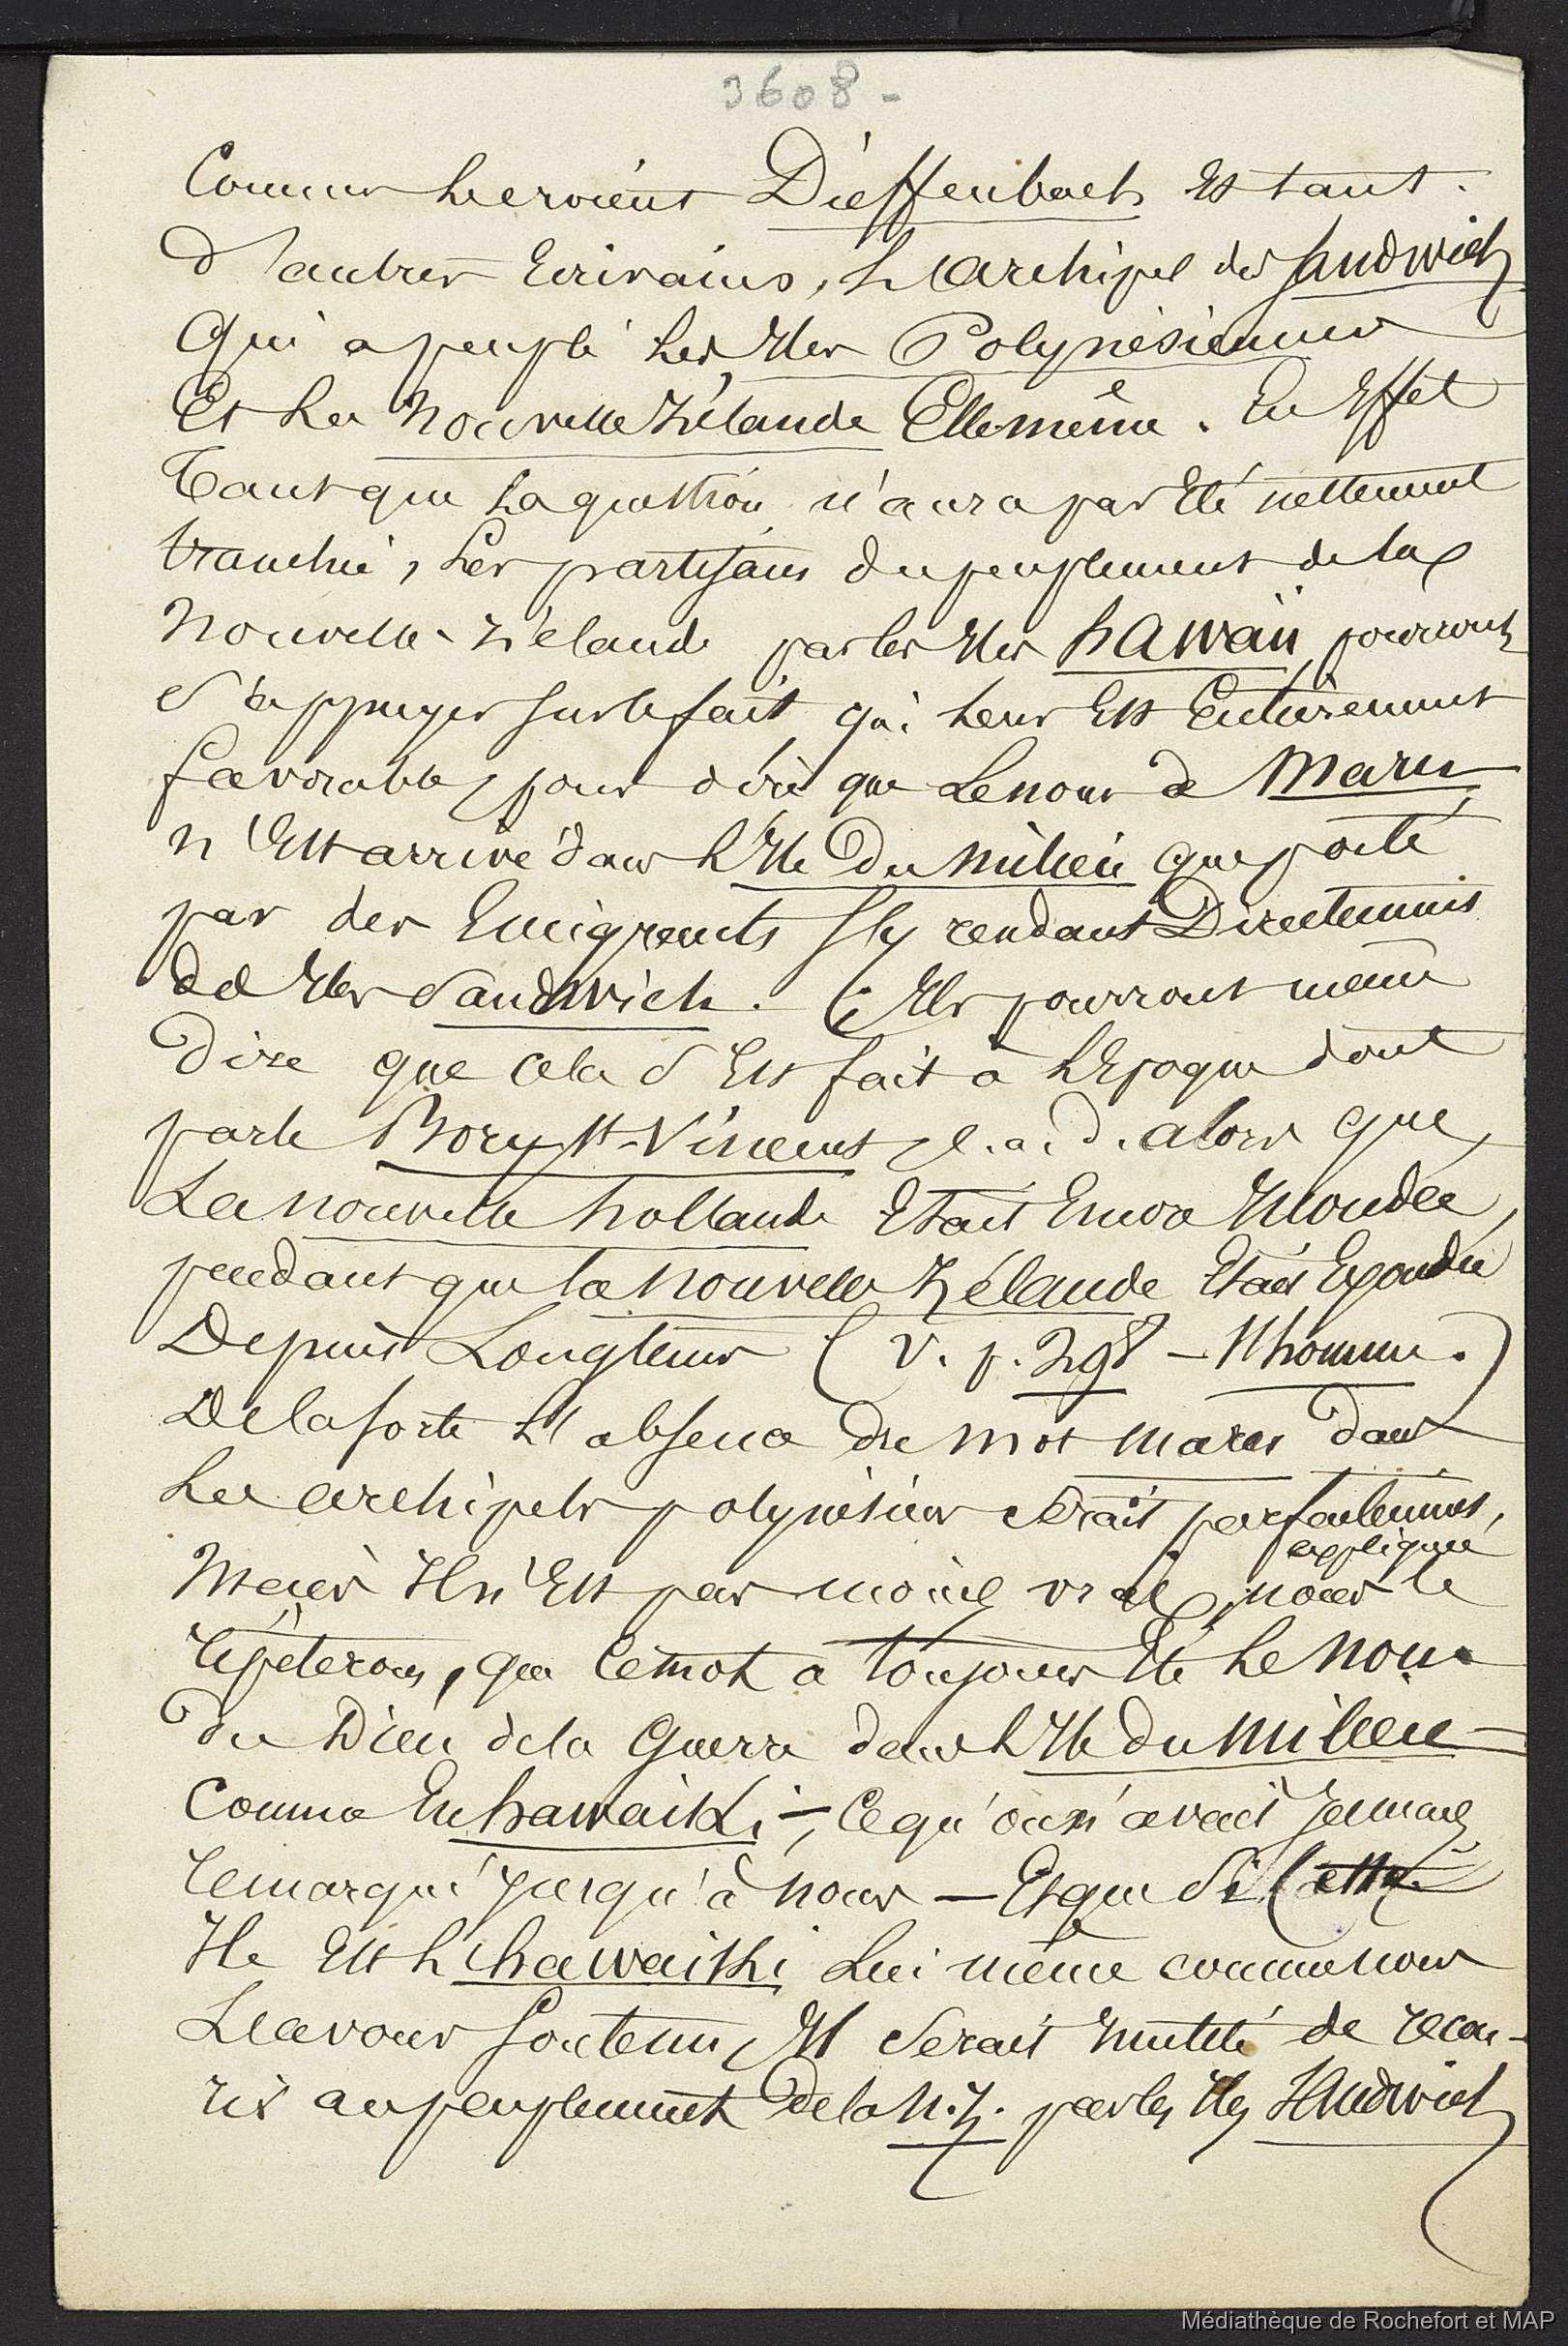 3608 -
Comme le croient Dieffenbach et tant
d'autres Ecrivains, l'archipel des Sandwich
qui a peuplé les Iles Polynésiennes
Et la Nouvelle Zélande Elle même. En Effet
Tant que la question n'aura pas Eté nettement
tranchée, les partisans du peuplement de la
Nouvelle-Zélande par les Iles hawaii pourront
s'appuyer sur le fait, qui leur Est Entièrement
favorable, pour dire que le nom de Maru
n'Est arrivé dans l'Ile du Milieu que porté
par des Emigrants s'y rendant Directement
des Iles Sandwich. Ils pourront même
Dire que cela s'Est fait à l'Epoque dont
parle Bory St-Vincent, c. a. d. alors que,
La Nouvelle hollande Etait Encore Inondée,
pendant que la Nouvelle Zélande Etait Exondée
Depuis Longtems (V. p. 298 - l'homme.)
De la sorte l'absence du mot maru dans
les archipels polynésiens serait parfaitement,
expliquée
Mais Il n'Est pas moins vrai, nous le
répéterons, que ce mot a toujours Eté le nom
du Dieu de la Guerre dans l'Ile du Milieu -
Comme En hawaiki -, Ce qu'on n'avait Jamais
remarqué jusqu'à nous - Et que si Cette
Ile Est l'hawaiki lui même comme nous
L'avons soutenu, Il serait Inutile de recou-
rir au peuplement de la N. Z. par les Iles Sandwich
Médiathèque de Rochefort et MAP